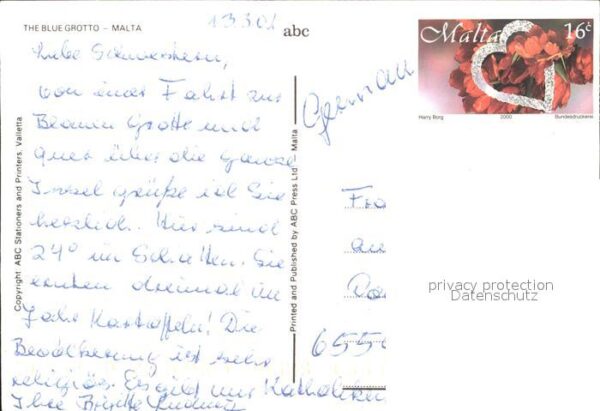 THE BLUE GROTTO – MALTA
13.3.01
abc
Malta 16c
Harry Borg 2000 Bundesdruckerei
Liebe Schwestern,
von einer Fahrt zur
Blauen Grotte und
quer über die ganze
Insel grüße ich Sie
herzlich. Hier sind
24° im Schatten. Sie
ernten dreimal im
Jahr Kartoffeln! Die
Bevölkerung ist sehr
religiös. Es gibt nur Katholiken
Ihre Brigitte Ludwig
Germany
Copyright ABC Stationers and Printers, Valletta
Printed and Published by ABC Press Ltd. Malta
6550
privacy protection
Datenschutz